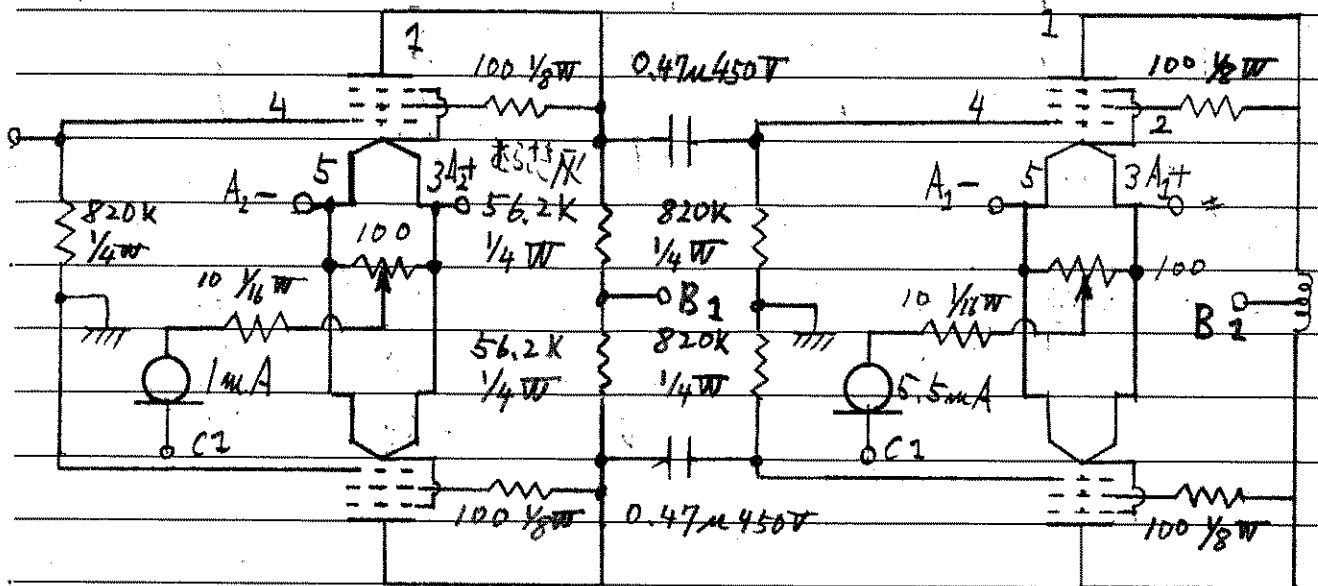 1
100 1/8W
0.47μ 450V
1
100 1/8W
4
4
2
5
3 A₂+
A₂-
56.2K
1/4W
820K
1/4W
A₁-
5
3 A₁+
820K
1/4W
100
100
10 1/16W
B1
10 1/16W
B1
56.2K
1/4W
820K
1/4W
1mA
5.5mA
C1
C1
100 1/8W
0.47μ 450V
100 1/8W